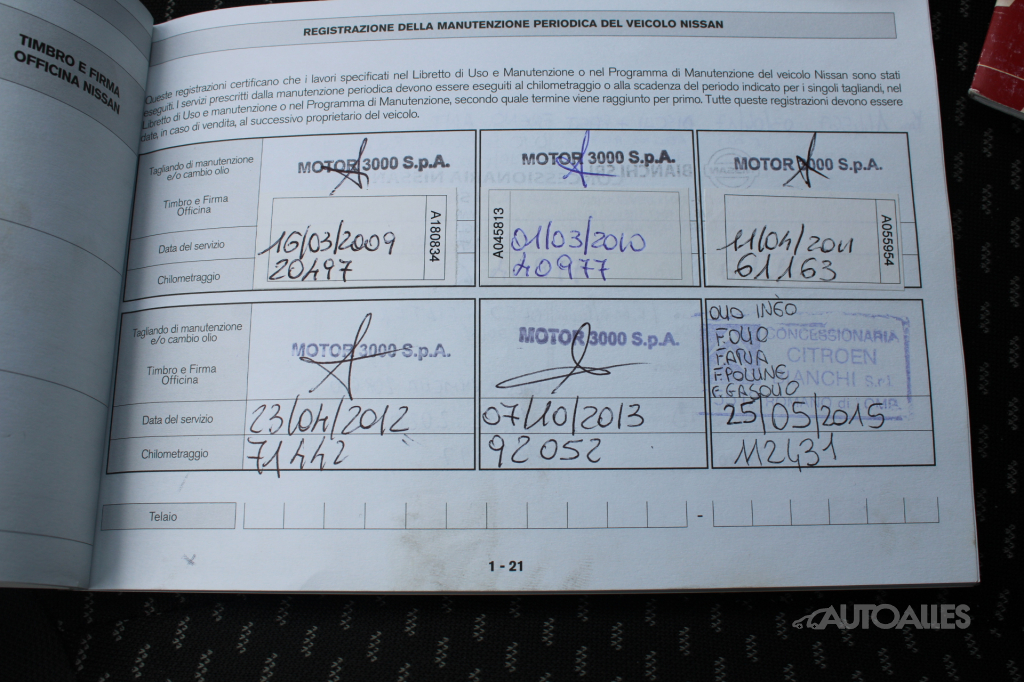 TIMBRO E FIRMA
OFFICINA NISSAN
REGISTRAZIONE DELLA MANUTENZIONE PERIODICA DEL VEICOLO NISSAN
Queste registrazioni certificano che i lavori specificati nel Libretto di Uso e Manutenzione o nel Programma di Manutenzione del veicolo Nissan sono stati
eseguiti. I servizi prescritti dalla manutenzione periodica devono essere eseguiti al chilometraggio o alla scadenza del periodo indicato per i singoli tagliandi, nel
Libretto di Uso e manutenzione o nel Programma di Manutenzione, secondo quale termine viene raggiunto per primo. Tutte queste registrazioni devono essere
date, in caso di vendita, al successivo proprietario del veicolo.
Tagliando di manutenzione
e/o cambio olio
MOTOR 3000 S.p.A.
MOTOR 3000 S.p.A.
MOTOR 3000 S.p.A.
Timbro e Firma
Officina
A180834
A045813
A055954
Data del servizio
16/03/2009
01/03/2010
11/04/2011
Chilometraggio
20497
40977
61163
Tagliando di manutenzione
e/o cambio olio
MOTOR 3000 S.p.A.
MOTOR 3000 S.p.A.
OLIO INEO
F.OLIO
F.ARIA
F.POLLINE
F.GASOLIO
CONCESSIONARIA
CITROEN
BIANCHI S.r.l
Timbro e Firma
Officina
Data del servizio
23/04/2012
07/10/2013
25/05/2015
Chilometraggio
71442
92052
112431
Telaio
-
1 - 21
AUTOALLES